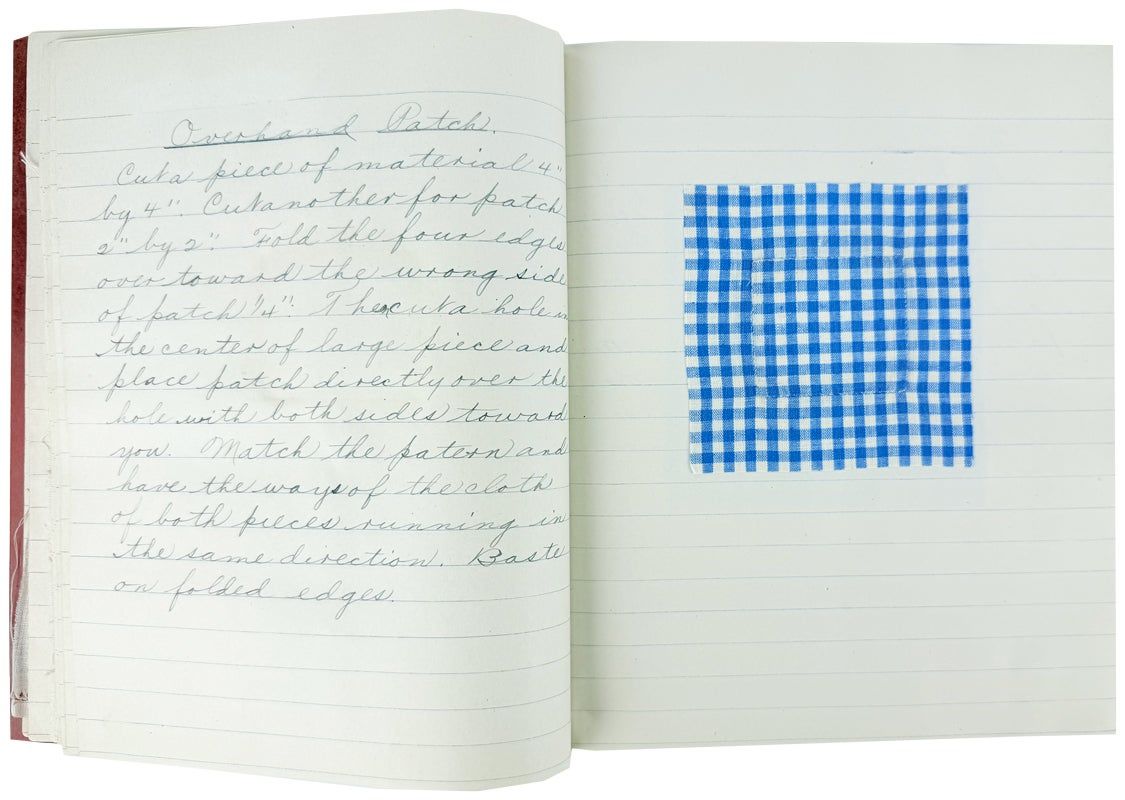 Overhand Patch.
Cut a piece of material 4"
by 4". Cut another for patch
2" by 2". Fold the four edges
over toward the wrong side
of patch 1/4". Then cut a hole in
the center of large piece and
place patch directly over the
hole with both sides toward
you. Match the patern and
have the ways of the cloth
of both pieces running in
the same direction. Baste
on folded edges.